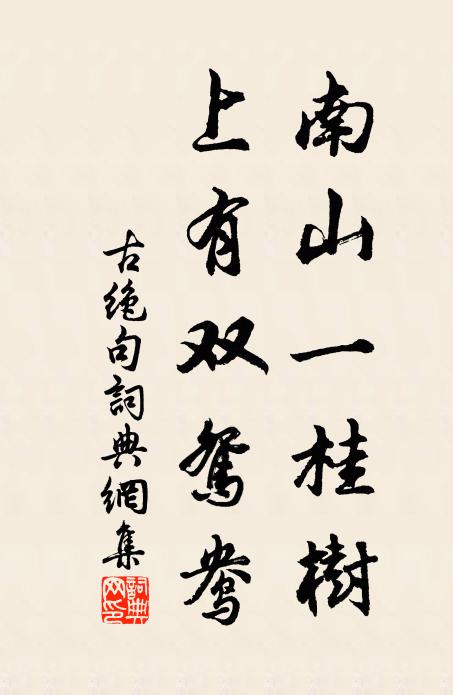 南山一桂樹
上有双鴛鴦
古绝句詞典網集
詞典网印